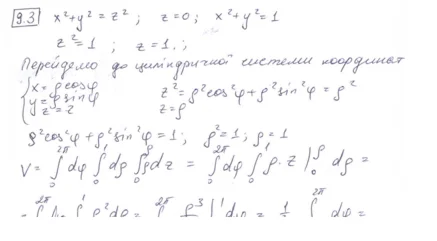 9.3 x²+y²=z² ; z=0 ; x²+y²=1
z²=1 ; z=1. ;
Перейдемо до циліндричної системи координат
{x=ρcosφ
y=ρsinφ
z=z
z²=ρ²cos²φ+ρ²sin²φ=ρ²
z=ρ
ρ²cos²φ+ρ²sin²φ=1 ; ρ²=1 ; ρ=1
V = ∫₀^{2π} dφ ∫₀^1 dρ ∫₀^ρ ρdz = ∫₀^{2π} dφ ∫₀^1 ρ·z |₀^ρ dρ =
= ∫₀^{2π} dφ ∫₀^1 ρ²dρ = ∫₀^{2π} ρ³ |₀^1 dφ = 1 ∫₀^{2π} dφ =